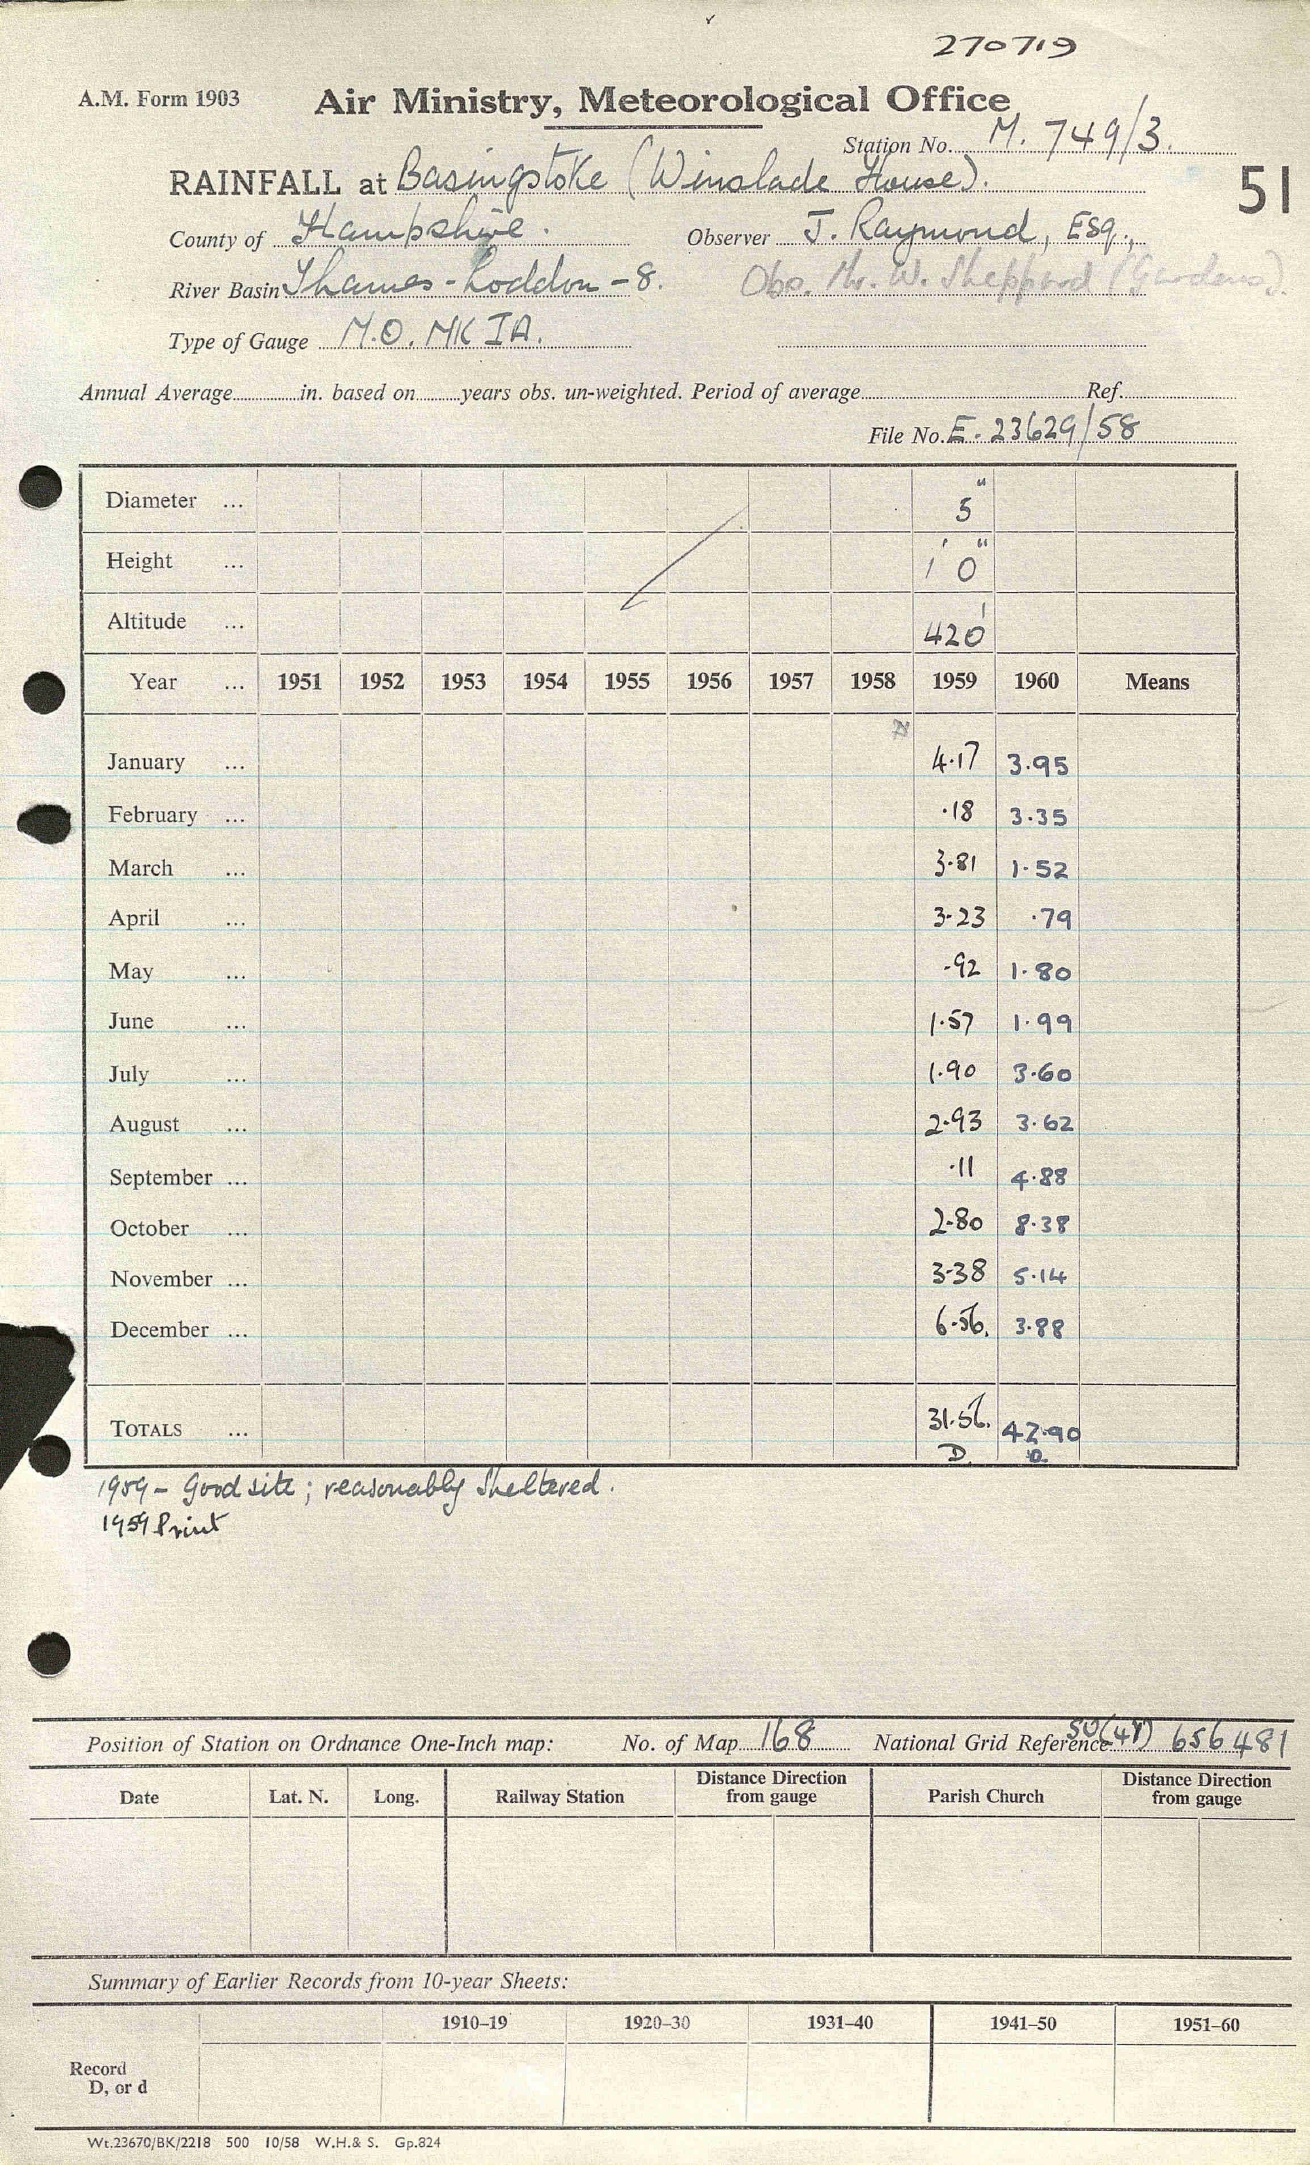 270719
A.M. Form 1903
Air Ministry, Meteorological Office
Station No. M. 749/3.
RAINFALL at Basingstoke (Winslade House).
51
County of Hampshire.
Observer J. Raymond, Esq.,
River Basin Thames-Loddon-8.
Obs. Mr. W. Sheppard (Gardens).
Type of Gauge M.O. MK IA.
Annual Average in. based on years obs. un-weighted. Period of average Ref.
File No. E. 23629/58
Diameter ... 5"
Height ... 1' 0"
Altitude ... 420'
Year ... 1951 1952 1953 1954 1955 1956 1957 1958 1959 1960 Means
January ... 4.17 3.95
February ... .18 3.35
March ... 3.81 1.52
April ... 3.23 .79
May ... .92 1.80
June ... 1.57 1.99
July ... 1.90 3.60
August ... 2.93 3.62
September ... .11 4.88
October ... 2.80 8.38
November ... 3.38 5.14
December ... 6.56. 3.88
TOTALS ... 31.56. 42.90
D. D.
1959 - Good site; reasonably sheltered.
1959 Print
Position of Station on Ordnance One-Inch map: No. of Map 168 National Grid Reference SU(41) 656481
Date Lat. N. Long. Railway Station Distance Direction from gauge Parish Church Distance Direction from gauge
Summary of Earlier Records from 10-year Sheets:
1910–19 1920–30 1931–40 1941–50 1951–60
Record
D, or d
Wt.23670/BK/2218 500 10/58 W.H.& S. Gp.824